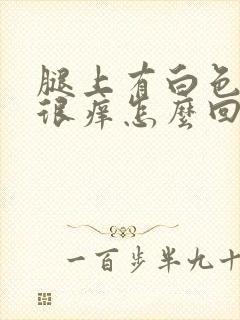 腿上有白色
很痒怎麼回
一百步半九十